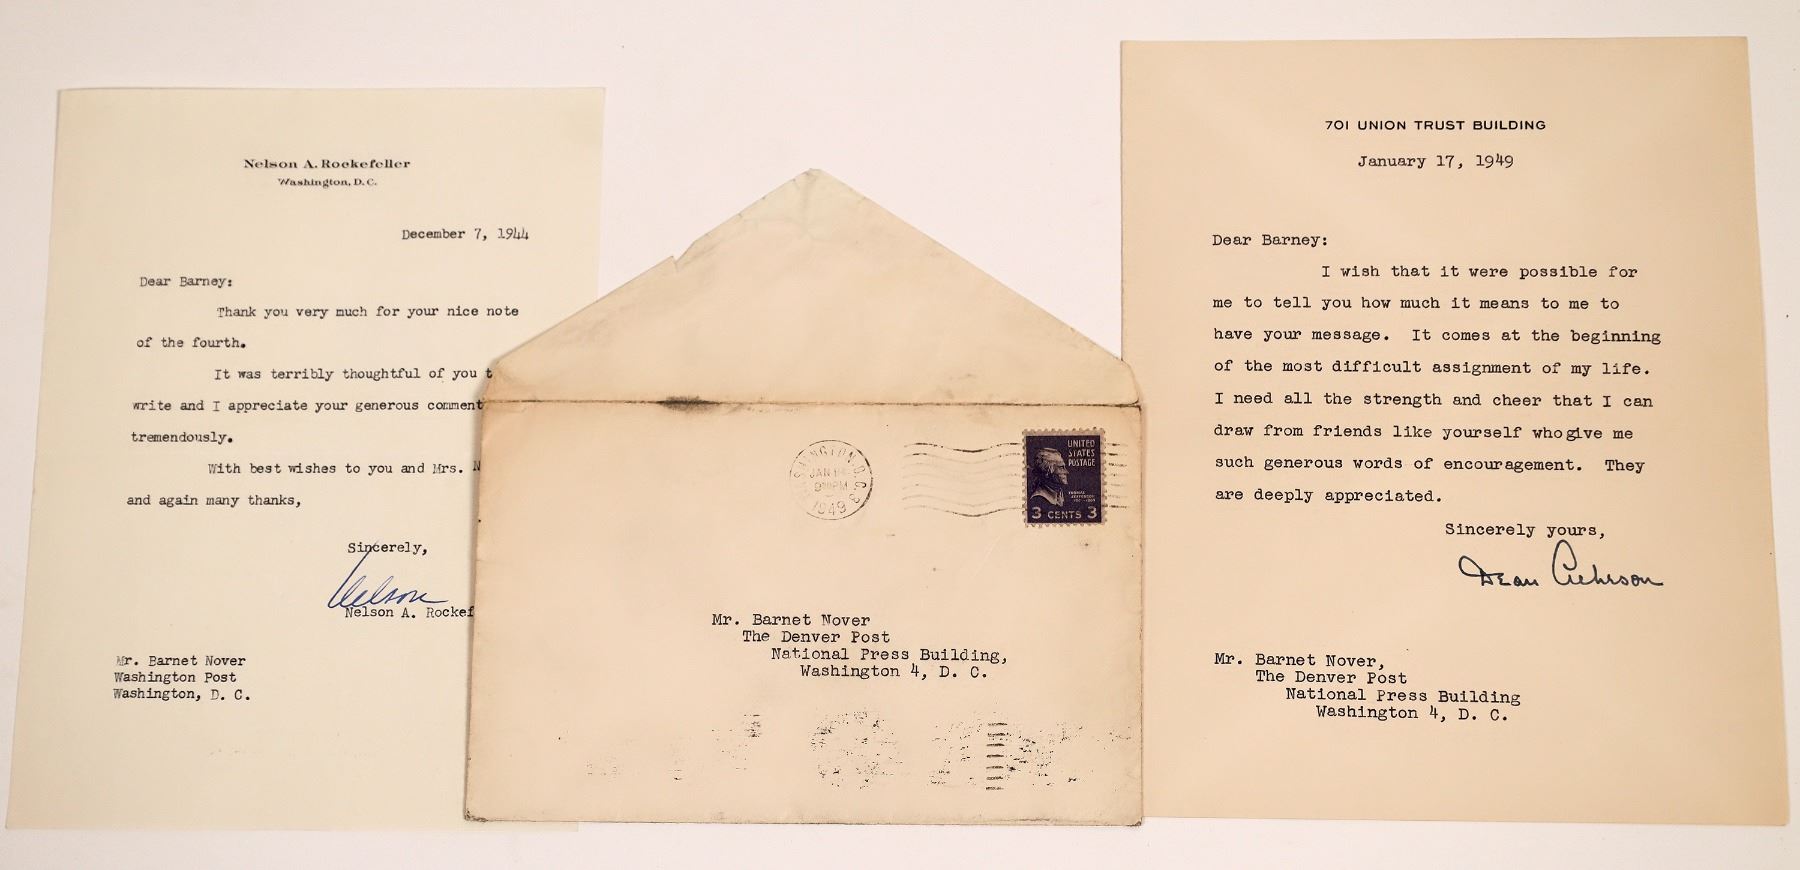 Nelson A. Rockefeller
Washington, D. C.
December 7, 1944
Dear Barney:
Thank you very much for your nice note
of the fourth.
It was terribly thoughtful of you t
write and I appreciate your generous comment
tremendously.
With best wishes to you and Mrs. N
and again many thanks,
Sincerely,
Nelson
Nelson A. Rockef
Mr. Barnet Nover
Washington Post
Washington, D. C.
WASHINGTON, D.C. 3
JAN
PM
1949
UNITED
STATES
POSTAGE
THOMAS
JEFFERSON
3 CENTS 3
Mr. Barnet Nover
The Denver Post
National Press Building,
Washington 4, D. C.
701 UNION TRUST BUILDING
January 17, 1949
Dear Barney:
I wish that it were possible for
me to tell you how much it means to me to
have your message. It comes at the beginning
of the most difficult assignment of my life.
I need all the strength and cheer that I can
draw from friends like yourself who give me
such generous words of encouragement. They
are deeply appreciated.
Sincerely yours,
Dean Acheson
Mr. Barnet Nover,
The Denver Post
National Press Building
Washington 4, D. C.